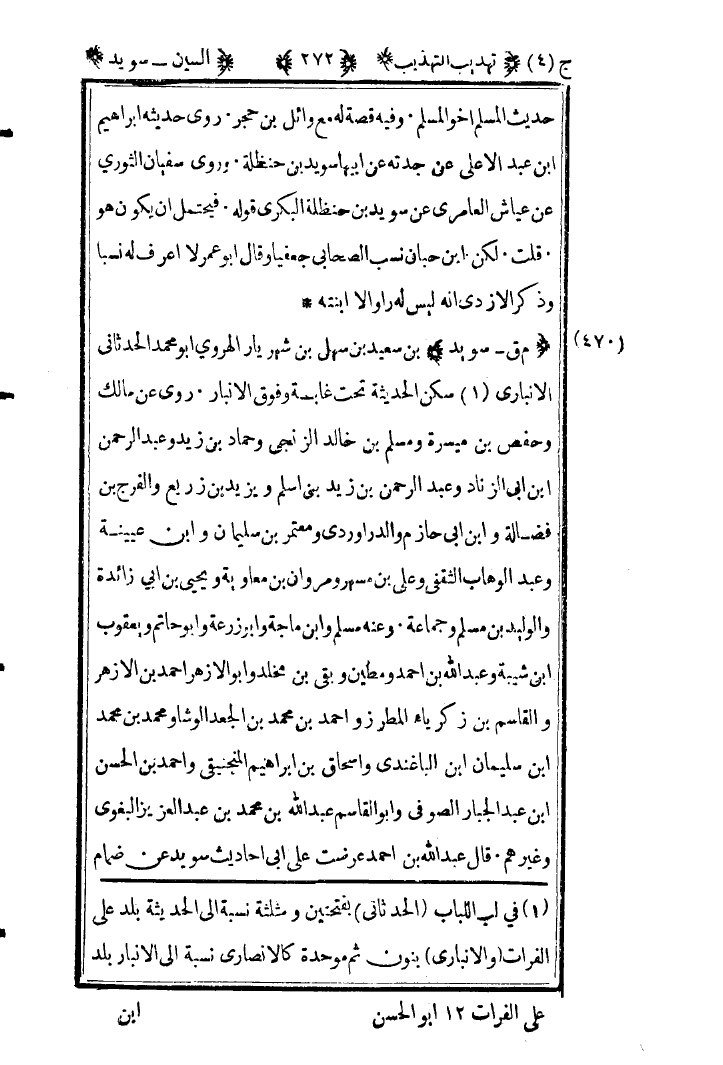 ج (٤) ﴿ تهذيب التهذيب ﴾ ﴿ ٢٧٢ ﴾ ﴿ السين ـ سويد ﴾
حديث المسلم اخو المسلم · وفيه قصة له مع وائل بن حجر · روى حديثه ابراهيم
ابن عبد الاعلى عن جدته عن ابيها سويد بن حنظلة · وروى سفيان الثوري
عن عياش العامرى عن سويد بن حنظلة البكرى قوله · فيحتمل ان يكون هو
· قلت · لكن ابن حبان نسب الصحابي جعفيا وقال ابو عمر لا اعرف له نسبا
وذكر الازدى انه ليس له راو الا ابنته *
(٤٧٠) ﴿ م ق ـ سويد ﴾ بن سعيد بن سهل بن شهر يار الهروي ابو محمد الحدثانى
الانبارى (١) سكن الحديثة تحت عانة وفوق الانبار · روى عن مالك
وحفص بن ميسرة ومسلم بن خالد الزنجى وحماد بن زيد وعبد الرحمن
ابن ابى الزناد وعبد الرحمن بن زيد بن اسلم ويزيد بن زريع والفرج بن
فضالة و ابن ابى حازم والدراوردى ومعتمر بن سليمان و ابن عيينة
وعبد الوهاب الثقفى وعلى بن مسهر ومروان بن معاوية ويحيى بن ابي زائدة
والوليد بن مسلم وجماعة · وعنه مسلم وابن ماجة وابو زرعة وابو حاتم ويعقوب
ابن شيبة وعبد الله بن احمد ومطين وبقى بن مخلد وابو الازهر احمد بن الازهر
و القاسم بن زكرياء المطرز و احمد بن محمد بن الجعد الوشا ومحمد بن محمد
ابن سليمان ابن الباغندى واسحاق بن ابراهيم المنجنيقى واحمد بن الحسن
ابن عبد الجبار الصوفى وابو القاسم عبد الله بن محمد بن عبد العزيز البغوى
وغيرهم · قال عبد الله بن احمد عرضت على ابى احاديث سويد عن ضمام
(١) في لب اللباب (الحدثانى) بفتحتين و مثلثة نسبة الى الحديثة بلد على
الفرات (والانبارى) بنون ثم موحدة كالانصارى نسبة الى الانبار بلد
على الفرات ١٢ ابو الحسن
ابن